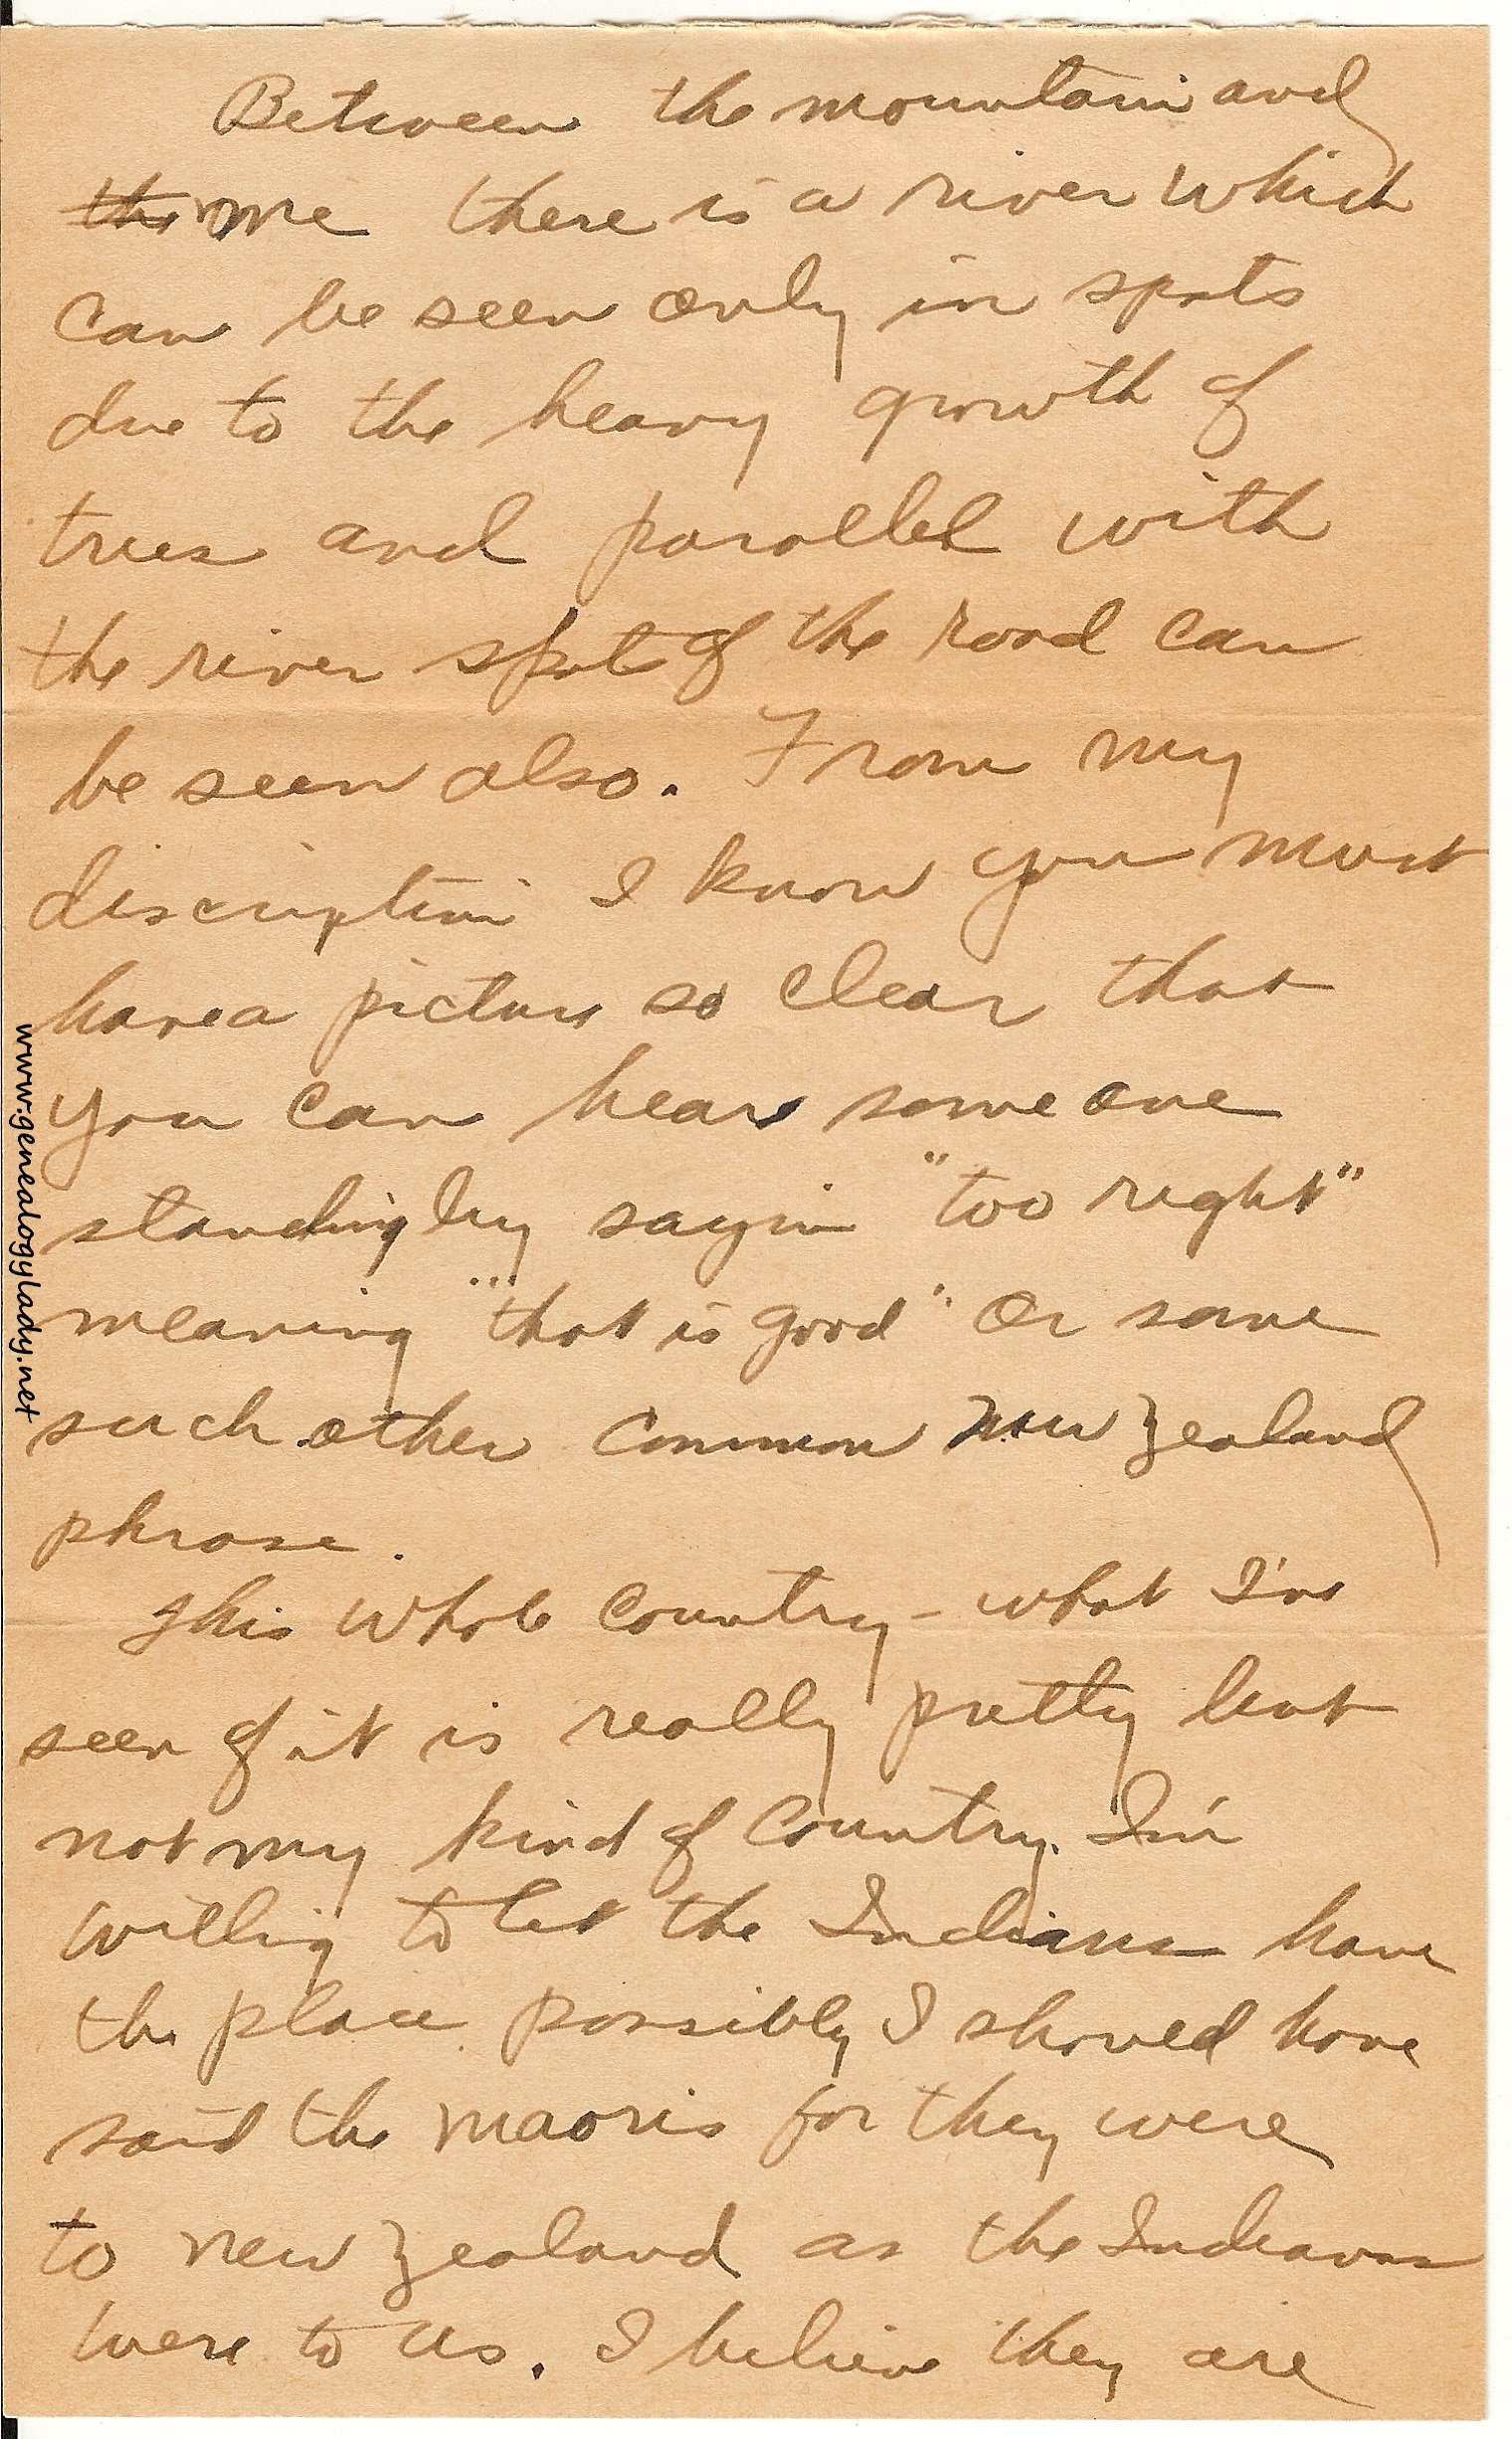 Between the mountain and
the me there is a river which
can be seen only in spots
due to the heavy growth of
trees and parallel with
the river spots of the road can
be seen also. From my
discription I know you must
have a picture so clear that
you can hear some one
standing by sayin "too right"
meaning "that is good" or some
such other common new zealand
phrase.
This whole country - what I've
seen of it is really pretty but
not my kind of country. I'm
willing to let the Indians have
the place. possibly I should have
said the maoris for they were
to new zealand as the Indians
were to us. I believe they are
www.genealogylady.net